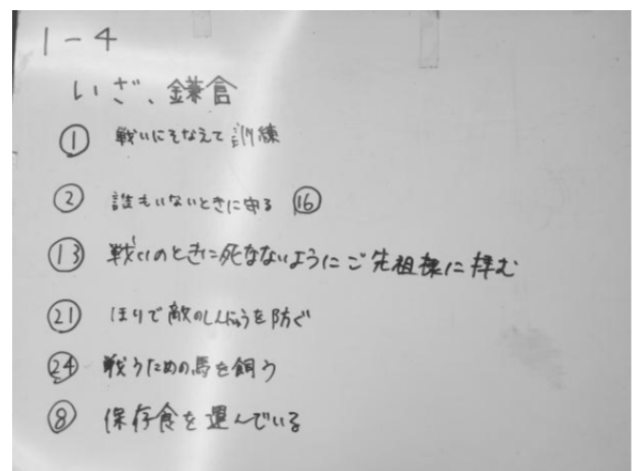 1-4
いざ、鎌倉
① 戦いにそなえて訓練
② 誰もいないときに守る ⑯
⑬ 戦いのときに死なないようにご先祖様に拝む
㉑ ほりで敵のしんにゅうを防ぐ
㉔ 戦うための馬を飼う
⑧ 保存食を運んでいる